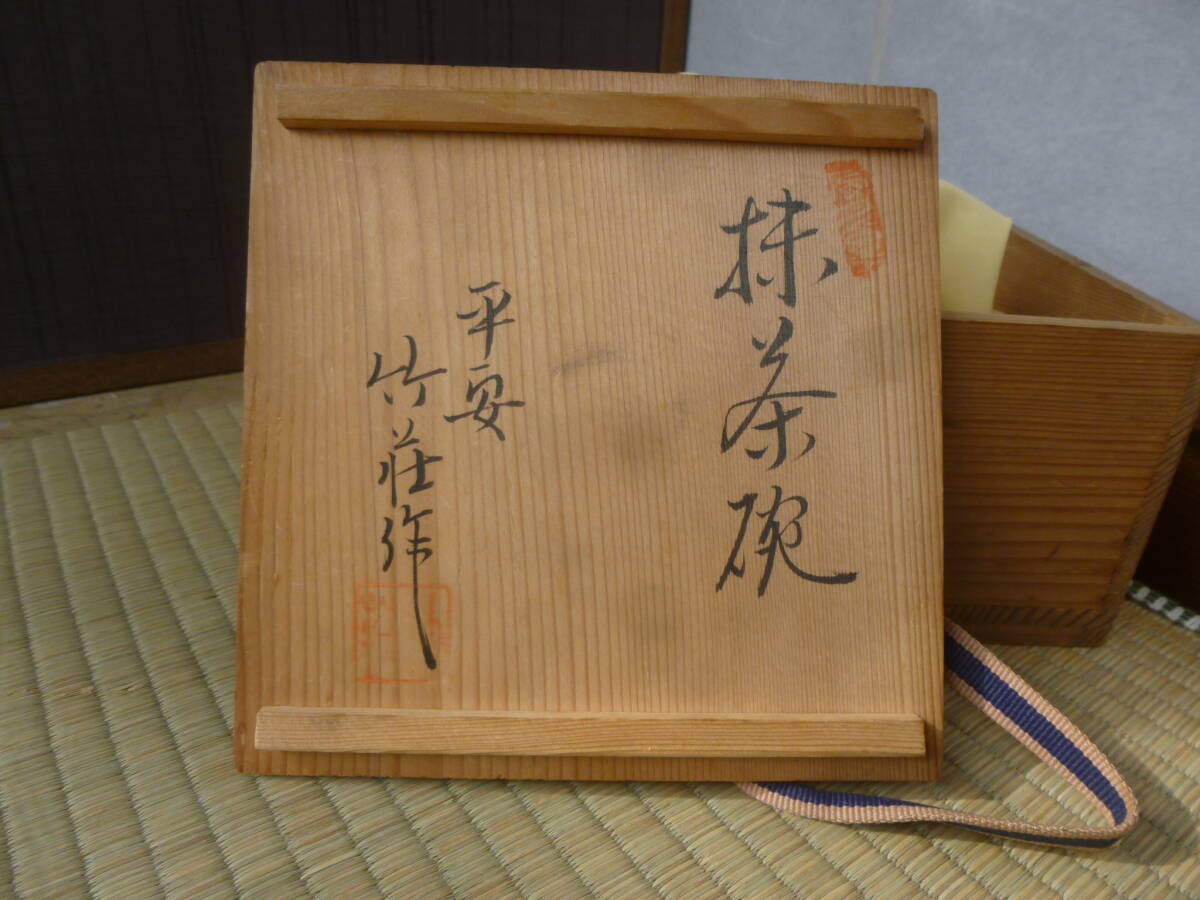 抹茶碗
平安
竹荘作